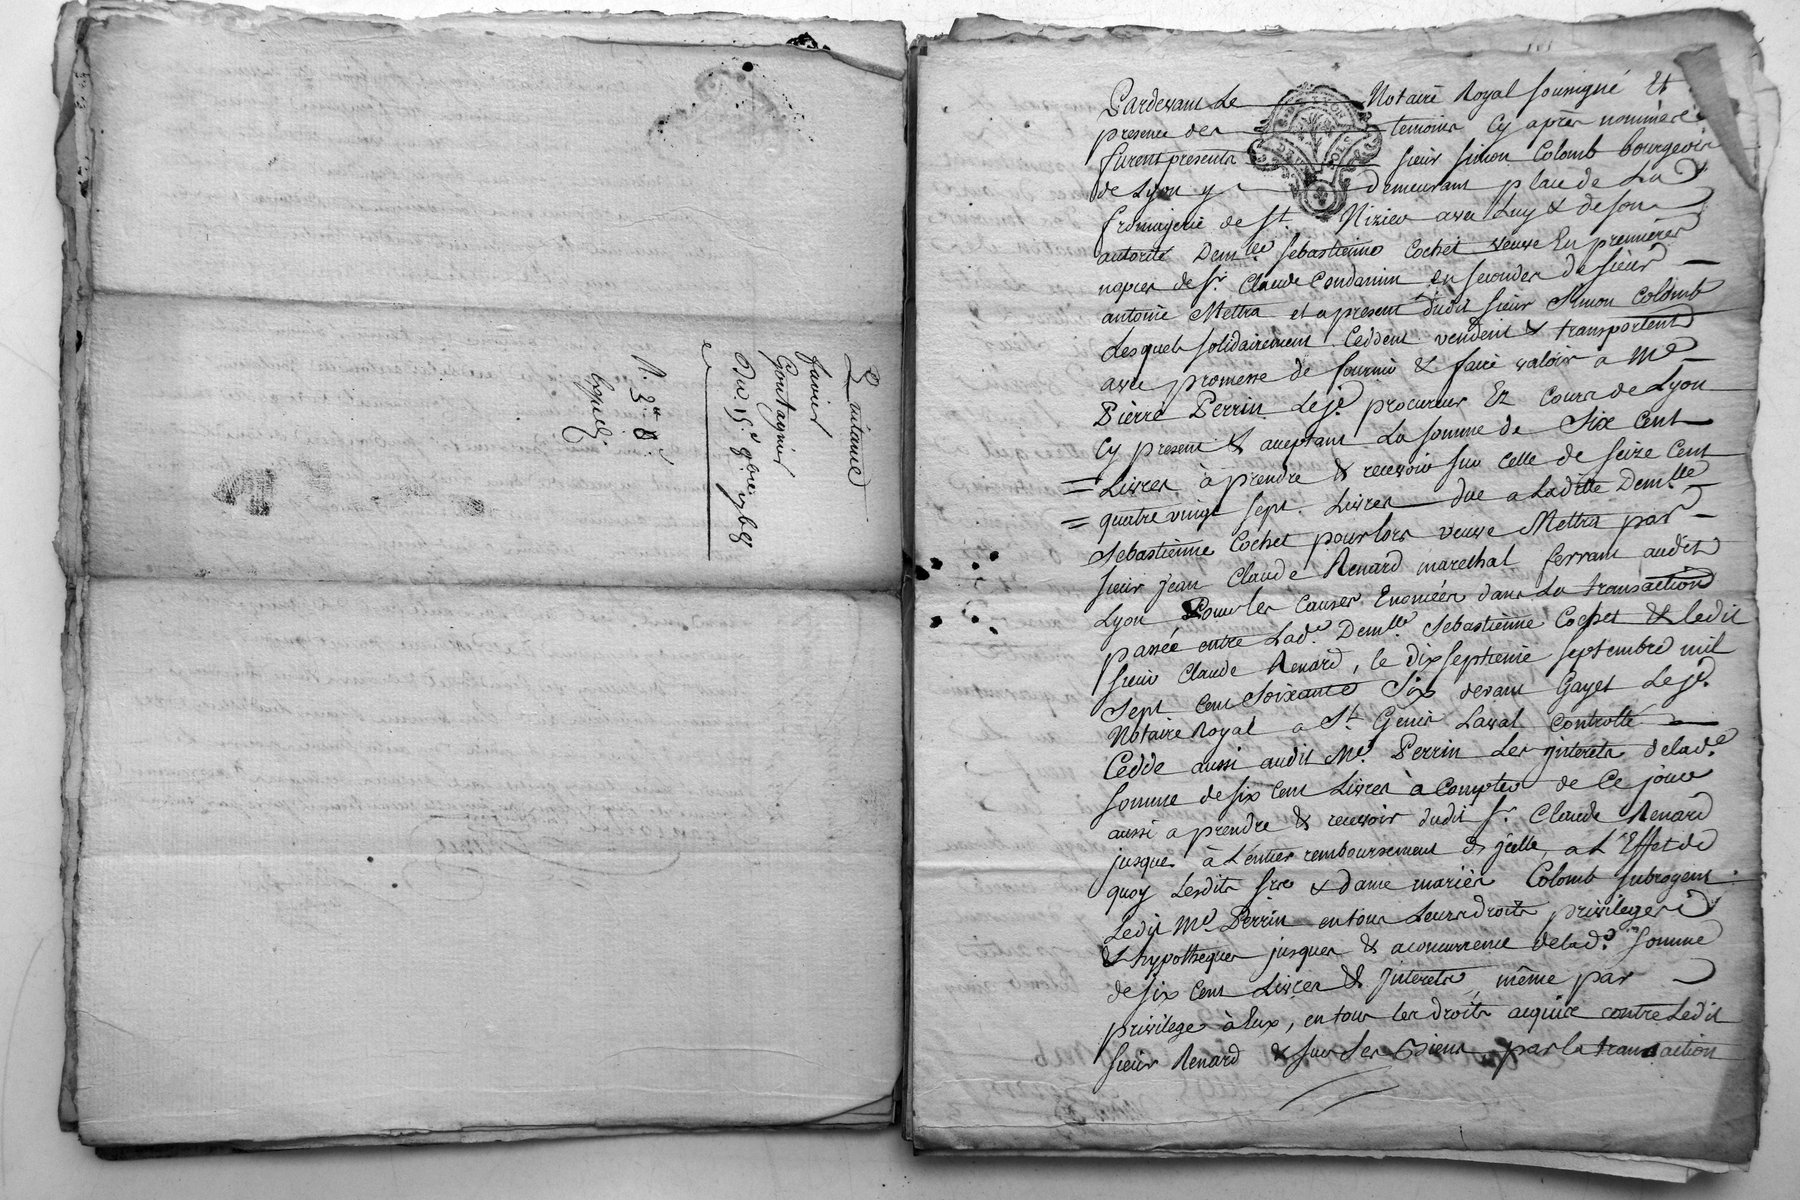 Quitance
favier
Goutagnier
Du 15e 9bre 1768
N. 3e
Pardevant Le Notaire Royal soussigné Et
presence des temoins Cy après nommères
furent presents sieur simon Colomb bourgeois
de Lyon y demeurant place de La
fromagerie de St. Nizier avec Luy & de son
autorité Demlle sebastienne Cochet veuve En premieres
nopces de Sr. Claude Condamin en secondes de sieur
antoine Mettra et a present dudit sieur Simon Colomb
Lesquels solidairement Ceddent vendent & transportent
avec promesse de fournir & faire valoir a Me
Pierre Perrin Leje. procureur Ez Cours de Lyon
Cy present & acceptant La somme de Six Cent
Livres, à prendre & recevoir sur celle de seize Cent
quatre vingt sept Livres due a Laditte Demlle
Sebastienne Cochet pour lors veuve Mettra par
sieur jean Claude Renard marechal ferrant audit
Lyon Pour les Causes Enoncées dans La transaction
passée entre Lade. Demlle. Sebastienne Cochet & ledit
sieur Claude Renard, le dix septieme septembre mil
sept Cent Soixante Six devant Gayet Leje.
Notaire Royal a St Genis Laval Controllé
Cedde aussi audit Me. Perrin Les Jnterets delade.
somme de six Cent Livres à Compter de Ce jour
aussi a prendre & recevoir dudit Sr. Claude Renard
jusques à L'entier remboursement d'jcelle, a L'Effet de
quoy Lesdits Srs & dame mariés Colomb subrogent
Ledit Me. Perrin en tous Leurs droits privileges
& hypotheques jusques & aconcurrence delade. somme
de six Cent Livres & Jnterets, même par
privilege à Eux, en tous les droits acquis contre Ledit
sieur Renard & sur Ses Biens par la transaction